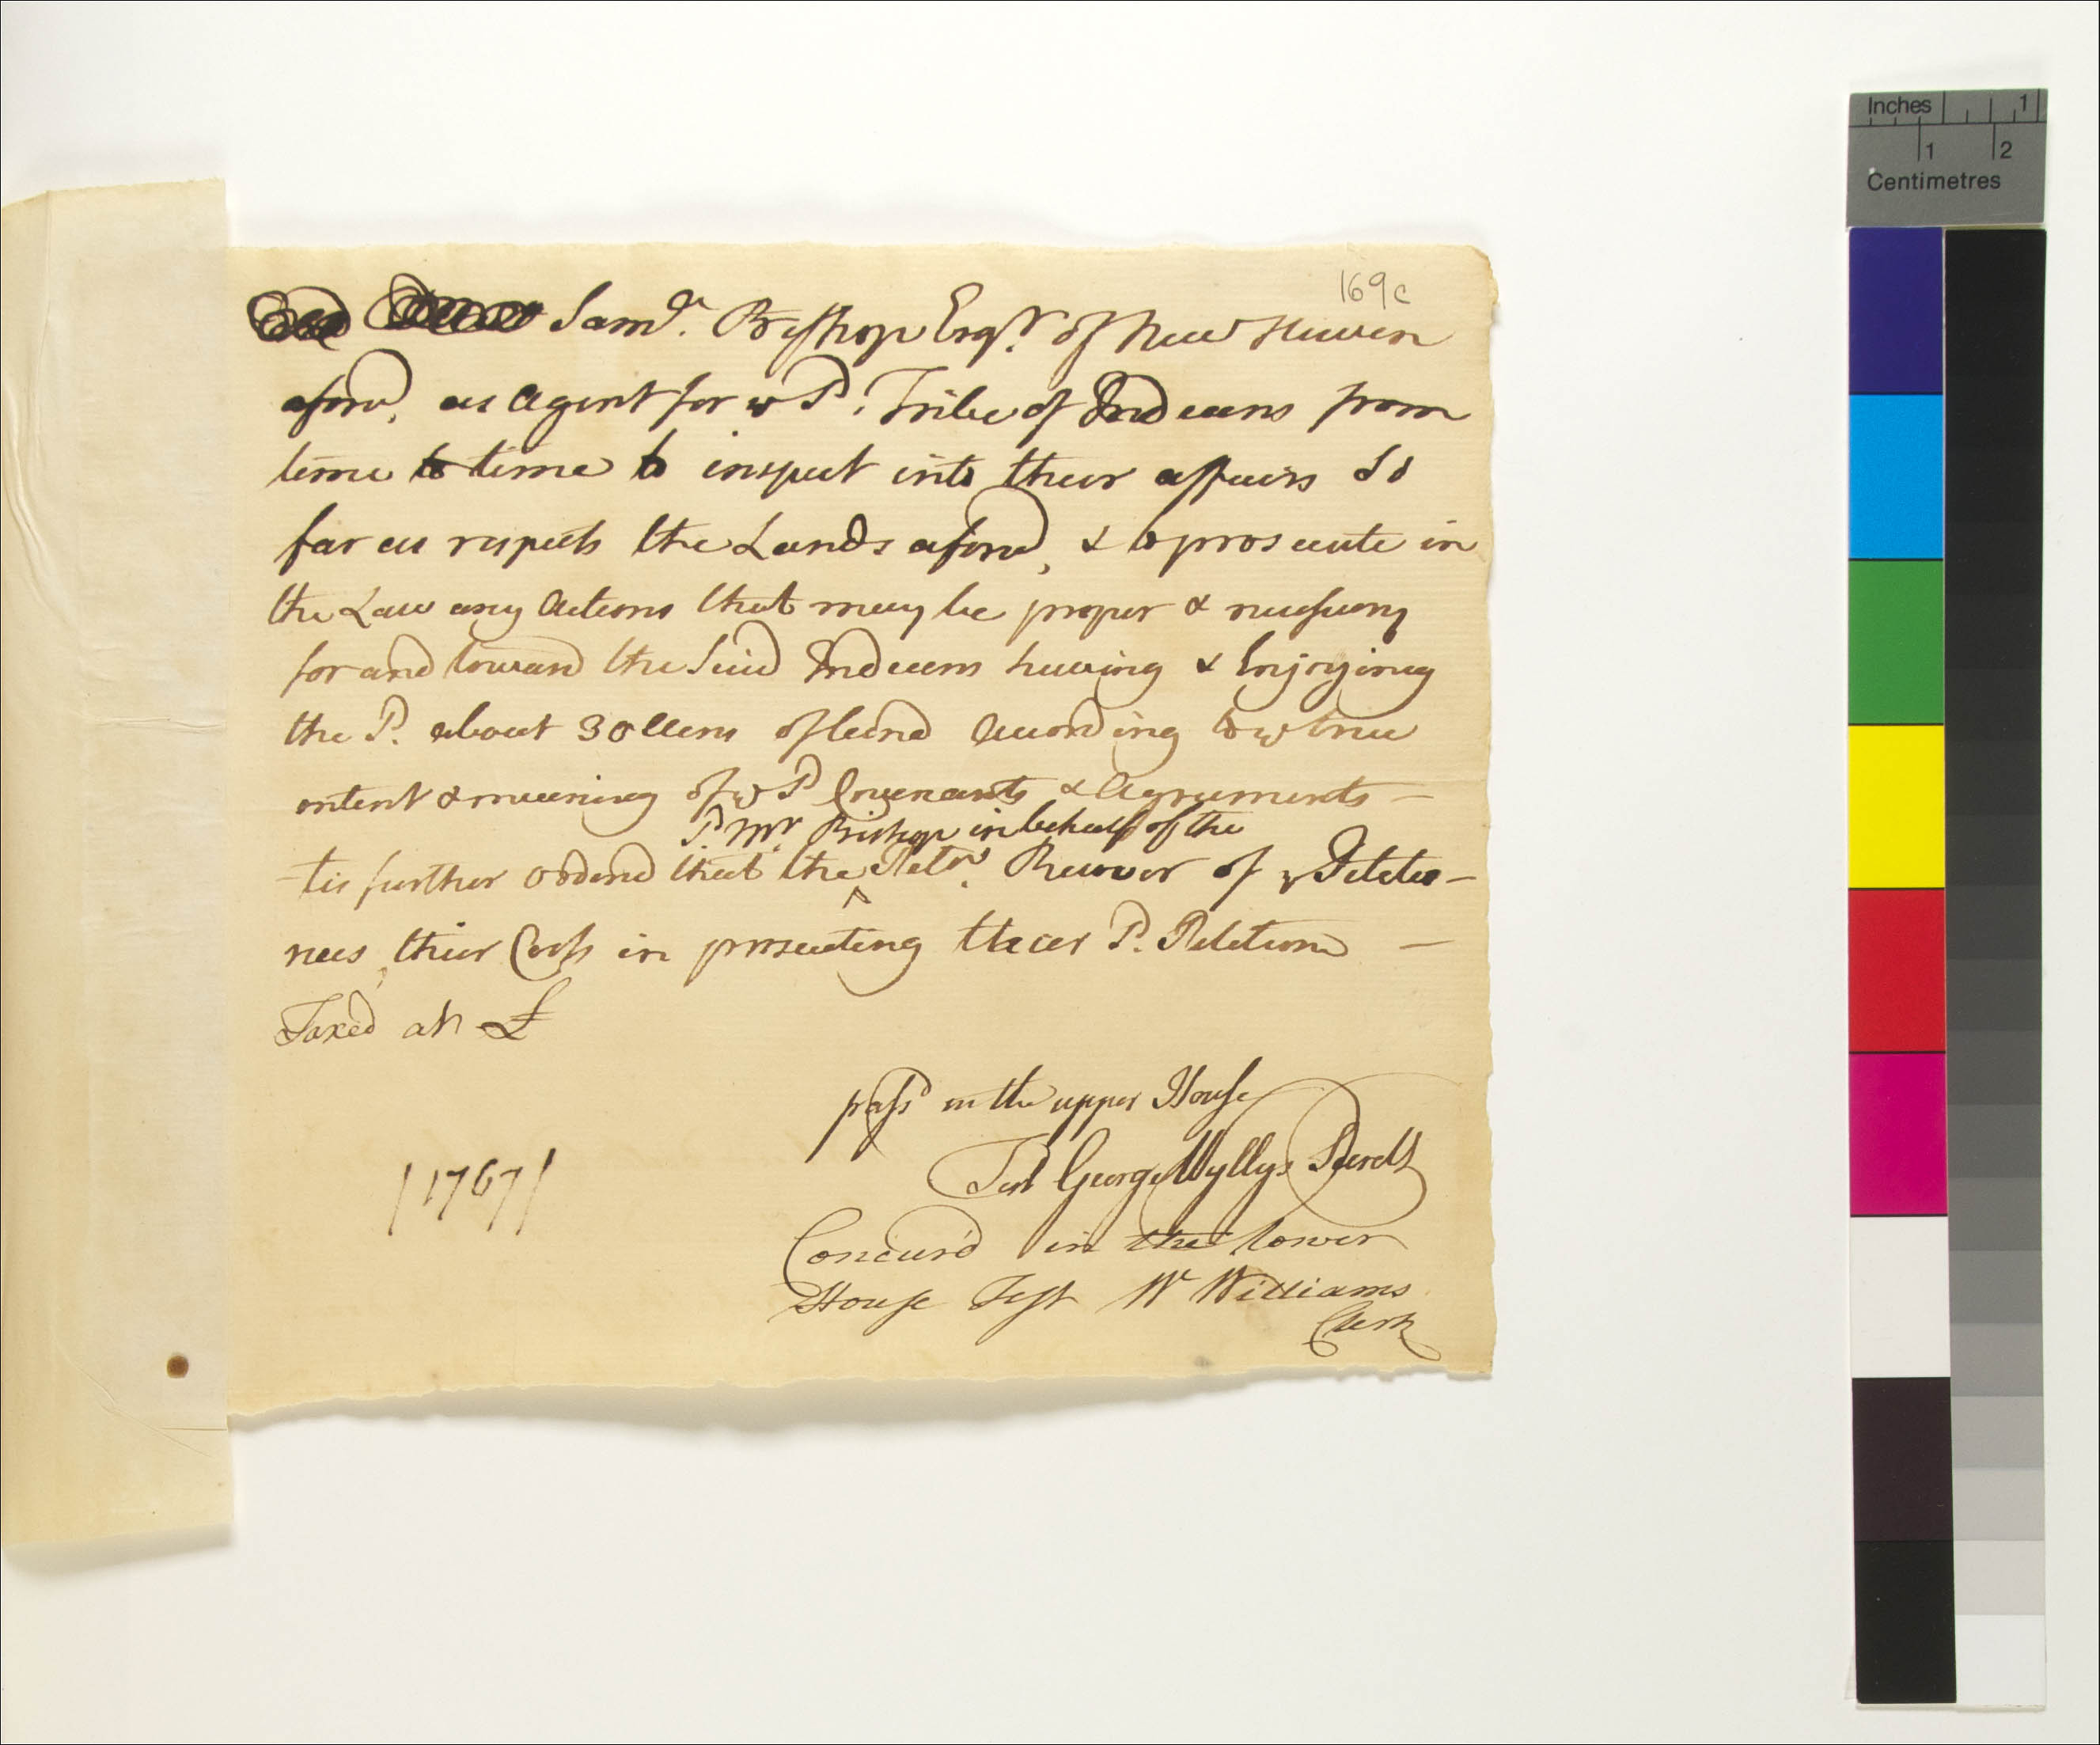 169c
Saml. Bishop Esqr. of New Haven
aford. as Agent for ye Sd. Tribe of Indeans from
time to time to inspect into their affairs So
far as respects the Lands aford, & to prosecute in
the Law any Actions that may be proper & necessary
for and toward the Said Indeans having & Enjoying
the Sd. about 30 Acres of land According to ye true
intent & meaning of ye Sd Covenants & Agreements —
Sd. Mr. Bishop in behalf of the
tis further ordered that the ^ Petrs. Recover of ye Petetio-
nees, their Cost in prosecuting their Sd. Petetion —
Taxed at £
pass'd in the upper House
Test George Wyllys Secrety
Concur'd in the lower
House Test W Williams
Clerk
/1767/
Inches 1
1 2
Centimetres